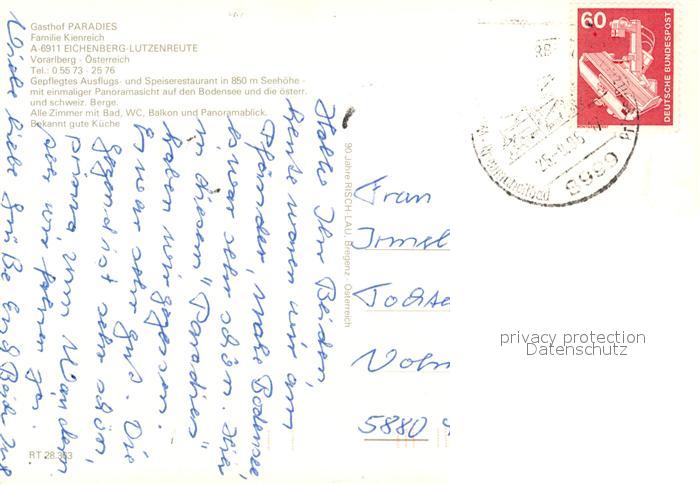 Gasthof PARADIES
Familie Kienreich
A-6911 EICHENBERG-LUTZENREUTE
Vorarlberg - Österreich
Tel.: 0 55 73 - 25 76
Gepflegtes Ausflugs- und Speiserestaurant in 850 m Seehöhe -
mit einmaliger Panoramasicht auf den Bodensee und die österr.
und schweiz. Berge.
Alle Zimmer mit Bad, WC, Balkon und Panoramablick.
Bekannt gute Küche
Hallo Ihr Beiden,
heute waren wir am
Pfänder, Nähe Bodensee,
es war sehr schön. Hier
in diesem "Paradies"
haben wir gegessen.
Es war sehr gut. Die
Gegend ist sehr schön,
prima zum Wandern
aber wir fahren ja.
Viele liebe Grüße
90 Jahre RISCH-LAU, Bregenz Österreich
RT 28.363
Frau
Irmgl
Tochte
Voln
5880
60
DEUTSCHE BUNDESPOST
privacy protection
Datenschutz